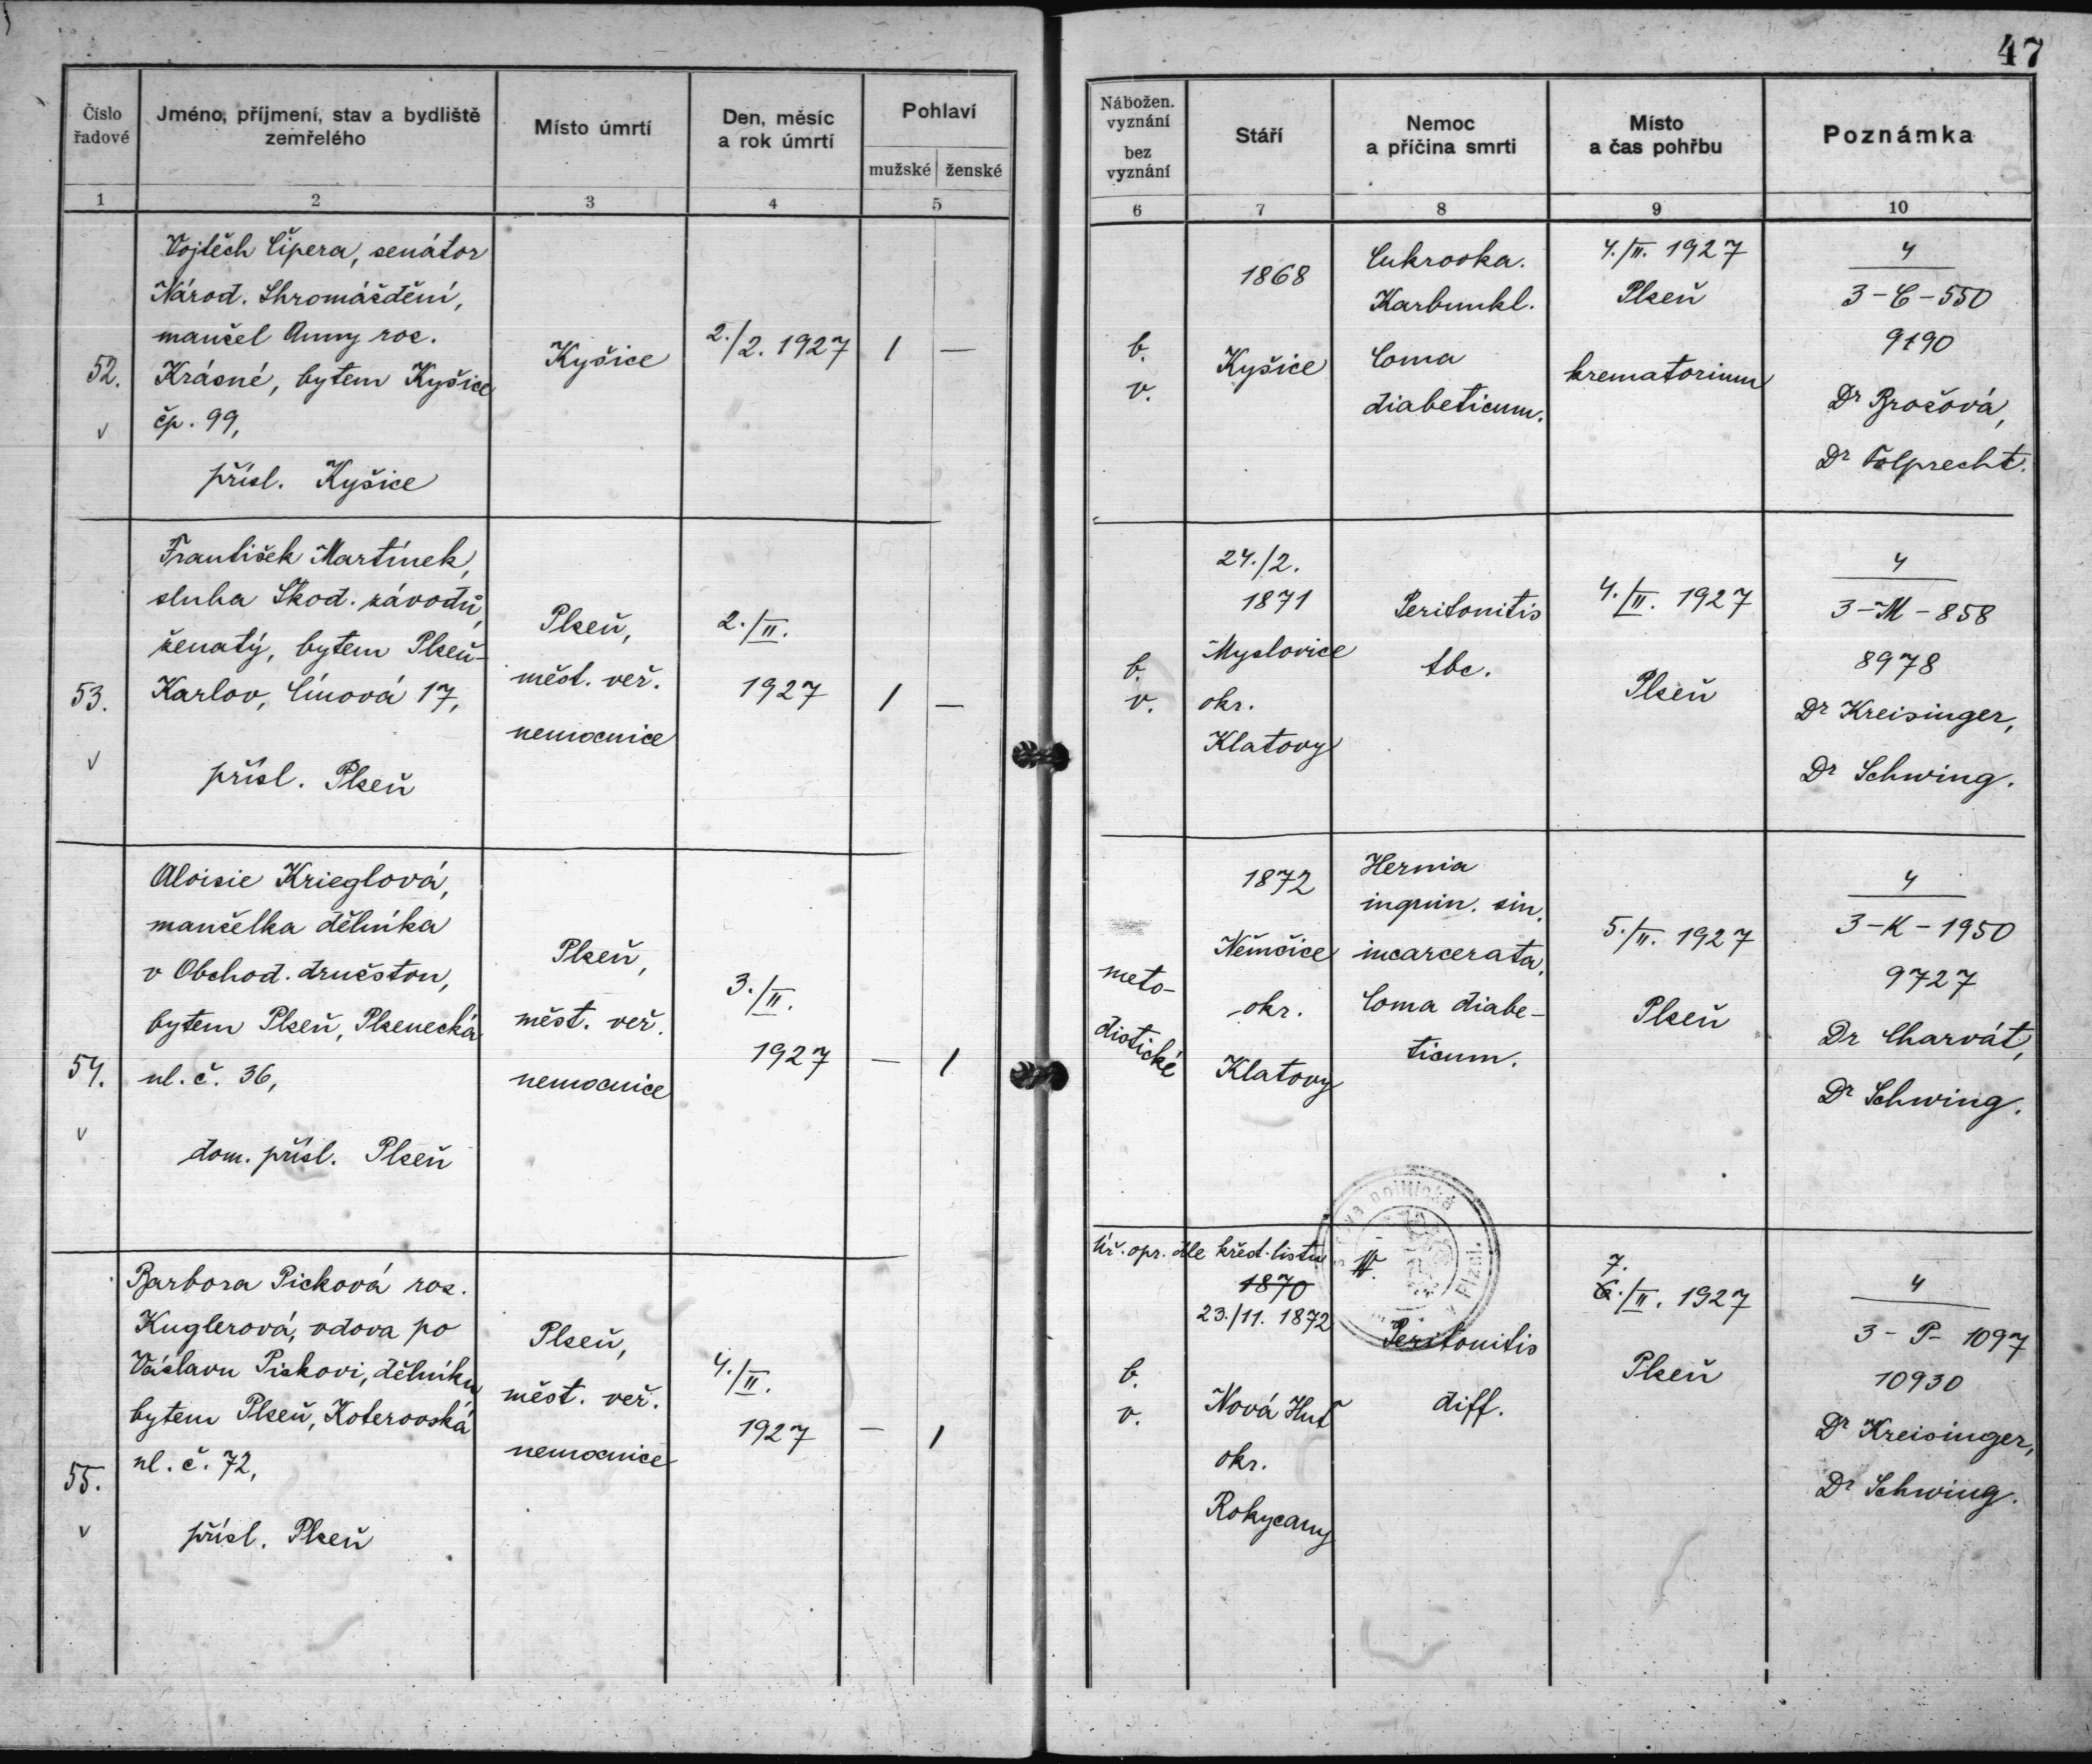 47
Číslo řadové
Jméno, příjmení, stav a bydliště zemřelého
Místo úmrtí
Den, měsíc a rok úmrtí
Pohlaví
mužské
ženské
Nábožen. vyznání
bez vyznání
Stáří
Nemoc a příčina smrti
Místo a čas pohřbu
Poznámka
1 2 3 4 5 6 7 8 9 10
52.
v
Vojtěch Čipera, senátor
Národ. Shromáždění,
manžel Anny roz.
Krásné, bytem Kyšice
čp. 99,
přísl. Kyšice
Kyšice
2./2. 1927
1 —
b.
v.
1868
Kyšice
Cukrovka.
Karbunkl.
Coma
diabeticum.
4./II. 1927
Plzeň
krematorium
4
3-C-550
9190
Dr Brožová,
Dr Folprecht.
53.
v
František Martínek,
sluha Škod. závodů,
ženatý, bytem Plzeň-
Karlov, Cínová 17,
přísl. Plzeň
Plzeň,
měst. veř.
nemocnice
2./II.
1927
1 —
b.
v.
24./2.
1871
Myslovice
okr.
Klatovy
Peritonitis
tbc.
4./II. 1927
Plzeň
4
3-M-858
8978
Dr Kreisinger,
Dr Schwing.
54.
v
Aloisie Krieglová,
manželka dělníka
v Obchod. družstvu,
bytem Plzeň, Plzenecká
ul. č. 36,
dom. přísl. Plzeň
Plzeň,
měst. veř.
nemocnice
3./II.
1927
— 1
meto-
distické
1872
Němčice
okr.
Klatovy
Hernia
inguin. sin.
incarcerata.
Coma diabe-
ticum.
5./II. 1927
Plzeň
4
3-K-1950
9727
Dr Charvát,
Dr Schwing.
55.
v
Barbora Picková roz.
Kuglerová, vdova po
Václavu Pickovi, dělníku
bytem Plzeň, Koterovská
ul. č. 72,
přísl. Plzeň
Plzeň,
měst. veř.
nemocnice
4./II.
1927
— 1
Úř. opr. dle křest. listu
b.
v.
1870
23./11. 1872
Nová Huť
okr.
Rokycany
politická
v Plzni.
Peritonitis
diff.
7.
6./II. 1927
Plzeň
4
3-P-1097
10930
Dr Kreisinger,
Dr Schwing.